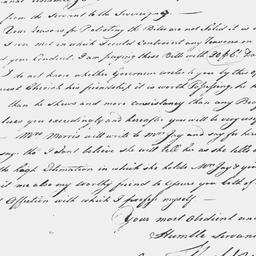 from the Servant to the Sovereign
Your reasons for Protesting the Bills are not
I am not in which I could controvert any Reasons on
your Conduct. I am paying those Bills with
I do not know whether Governeur writes you by this
must Cherish his friendship it is worth Possessing, he
than he shews and more consistancy than any
loves you exceedingly and hereafter you will be very
Mrs Morris will write to Mrs Jay and say for her
say. tho' I dont believe she will tell her as she tells
the high Estimation in which she holds Mrs Jay &
it me also my worthy friend to assure you both of
Affection with which I profess myself
Your most obedient and
Humble Servant